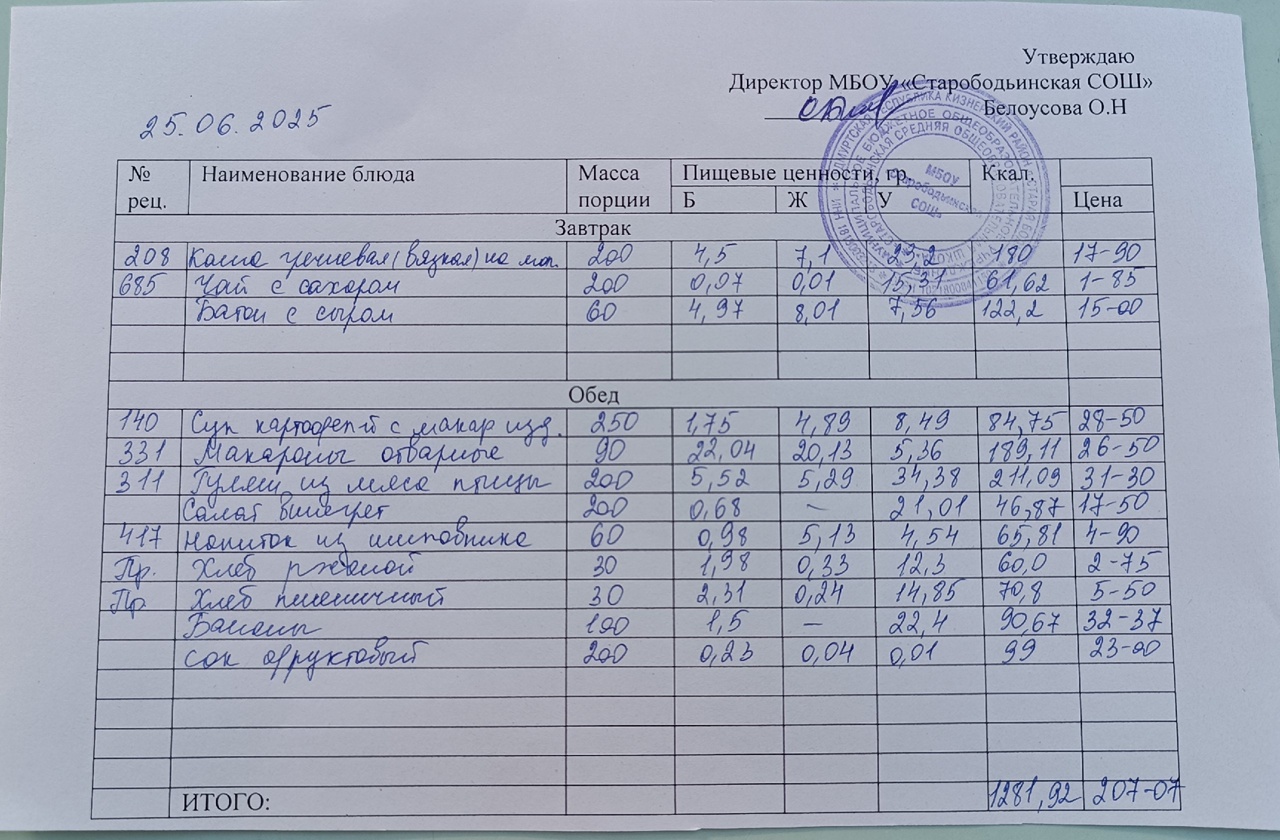 Утверждаю
Директор МБОУ «Старободьинская СОШ»
Белоусова О.Н
25.06.2025
№ рец. Наименование блюда Масса порции Пищевые ценности, гр. Ккал.
Б Ж У Цена
Завтрак
208 Каша гречневая (вязкая) на мол. 200 4,5 7,1 23,2 180 17-90
685 Чай с сахаром 200 0,07 0,01 15,31 61,62 1-85
Батон с сыром 60 4,97 8,01 7,56 122,2 15-00
Обед
140 Суп картофел-й с макар изд. 250 1,75 4,89 8,49 84,75 28-50
331 Макароны отварные 90 22,04 20,13 5,36 189,11 26-50
311 Гуляш из мяса птицы 200 5,52 5,29 34,38 211,09 31-30
Салат винегрет 200 0,68 — 21,01 46,87 17-50
417 Напиток из шиповника 60 0,98 5,13 4,54 65,81 4-90
Пр. Хлеб ржаной 30 1,98 0,33 12,3 60,0 2-75
Пр Хлеб пшеничный 30 2,31 0,24 14,85 70,8 5-50
Бананы 100 1,5 — 22,4 90,67 32-37
Сок фруктовый 200 0,23 0,04 0,01 99 23-00
ИТОГО: 1281,92 207-07
МБОУ
Старободьинская
СОШ»